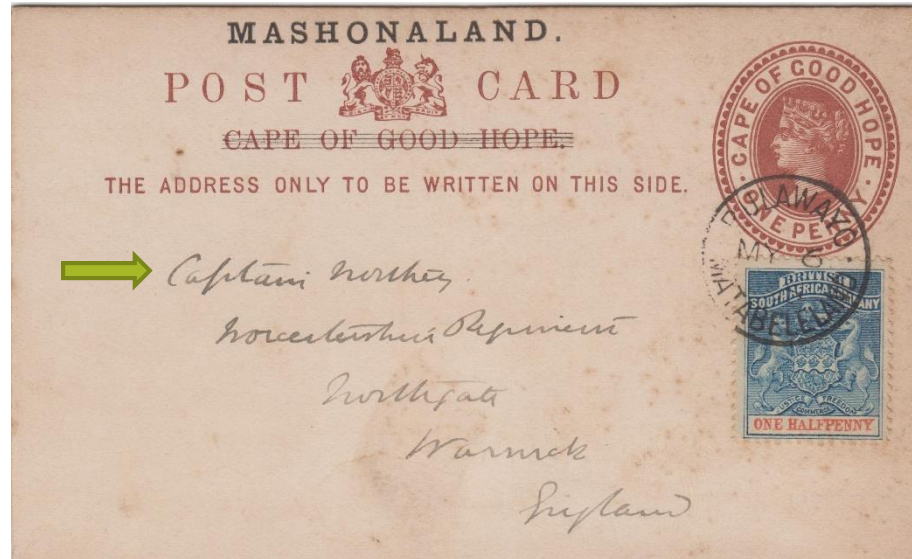 MASHONALAND.
POST CARD
CAPE OF GOOD HOPE.
THE ADDRESS ONLY TO BE WRITTEN ON THIS SIDE.
CAPE OF GOOD HOPE.
ONE PENNY
BULAWAYO.
MY 6
MATABELELAND
BRITISH
SOUTH AFRICA COMPANY
JUSTICE FREEDOM
COMMERCE
ONE HALFPENNY
Captain Northey
Worcestershire Regiment
Northgate
Warwick
England